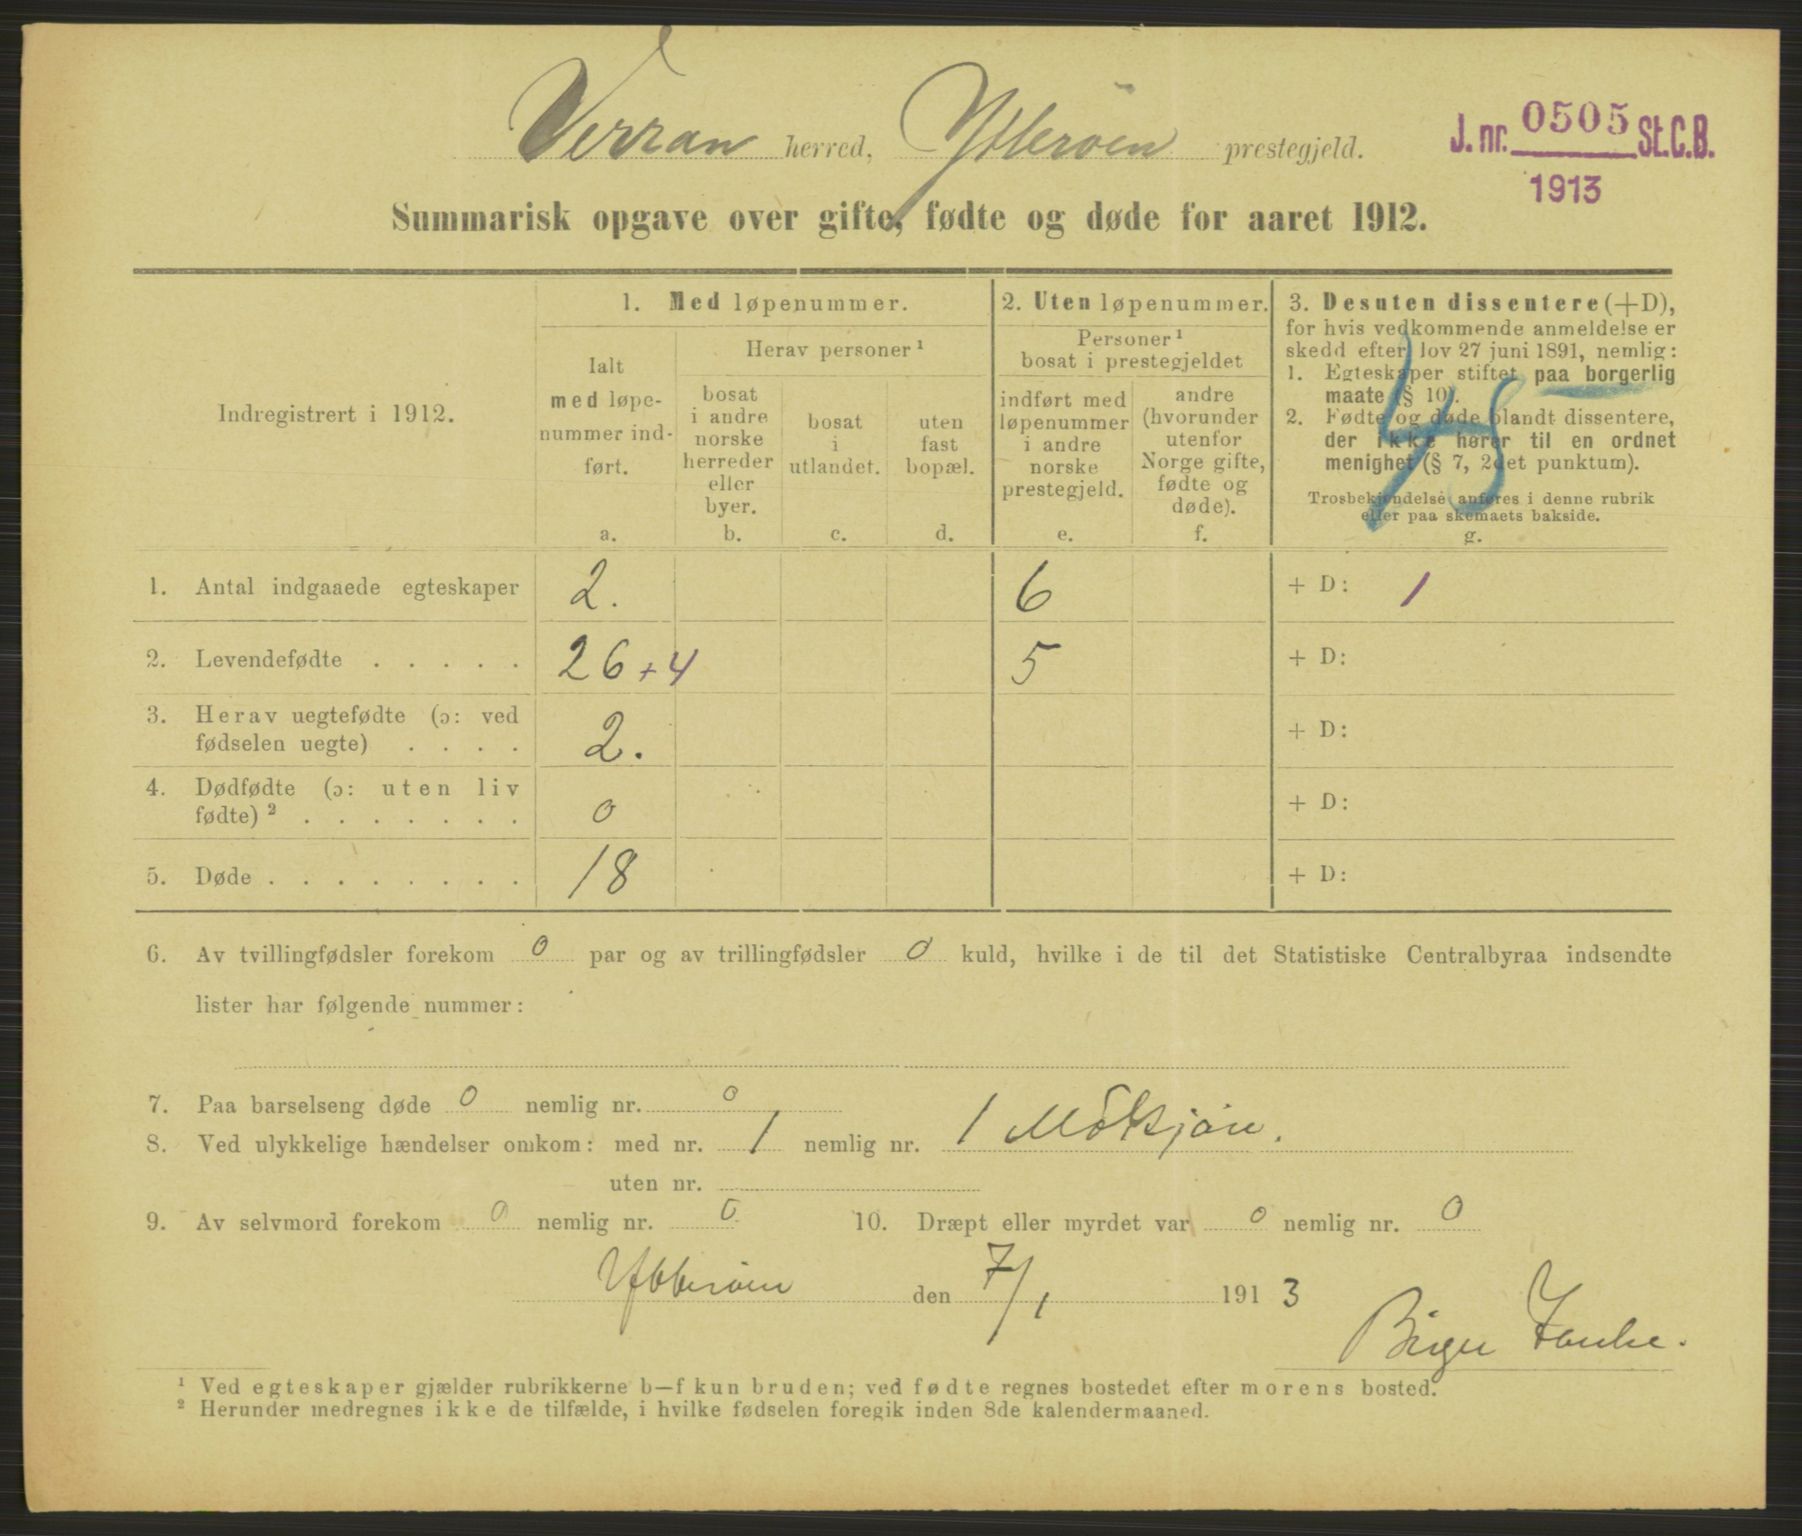 Verran herred, Ytterøen prestegjeld.
J. nr. 0505 St.C.B.
1913
Summarisk opgave over gifte, fødte og døde for aaret 1912.
Indregistrert i 1912.
1. Med løpenummer.
Ialt
med løpe-
nummer ind-
ført.
a.
Herav personer ¹
bosat
i andre
norske
herreder
eller
byer.
b.
bosat
i
utlandet.
c.
uten
fast
bopæl.
d.
2. Uten løpenummer.
Personer ¹
bosat i prestegjeldet
indført med
løpenummer
i andre
norske
prestegjeld.
e.
andre
(hvorunder
utenfor
Norge gifte,
fødte og
døde).
f.
3. Desuten dissentere (+D),
for hvis vedkommende anmeldelse er
skedd efter lov 27 juni 1891, nemlig:
1. Egteskaper stiftet paa borgerlig
maate (§ 10).
2. Fødte og døde blandt dissentere,
der ikke hører til en ordnet
menighet (§ 7, 2det punktum).
Trosbekjendelse anføres i denne rubrik
eller paa skemaets bakside.
g.
1. Antal indgaaede egteskaper 2. 6 + D: 1
2. Levendefødte . . . . . 26 + 4 5 + D:
3. Herav uegtefødte (ɔ: ved
fødselen uegte) . . . . 2. + D:
4. Dødfødte (ɔ: uten liv
fødte) ² . . . . . . . 0 + D:
5. Døde . . . . . . . . 18 + D:
6. Av tvillingfødsler forekom 0 par og av trillingfødsler 0 kuld, hvilke i de til det Statistiske Centralbyraa indsendte
lister har følgende nummer:
7. Paa barselseng døde 0 nemlig nr. 0
8. Ved ulykkelige hændelser omkom: med nr. 1 nemlig nr. 1
uten nr.
9. Av selvmord forekom 0 nemlig nr. 0 10. Dræpt eller myrdet var 0 nemlig nr. 0
Ytterøen den 7/1 1913
Birger
¹ Ved egteskaper gjælder rubrikkerne b—f kun bruden; ved fødte regnes bostedet efter morens bosted.
² Herunder medregnes ikke de tilfælde, i hvilke fødselen foregik inden 8de kalendermaaned.